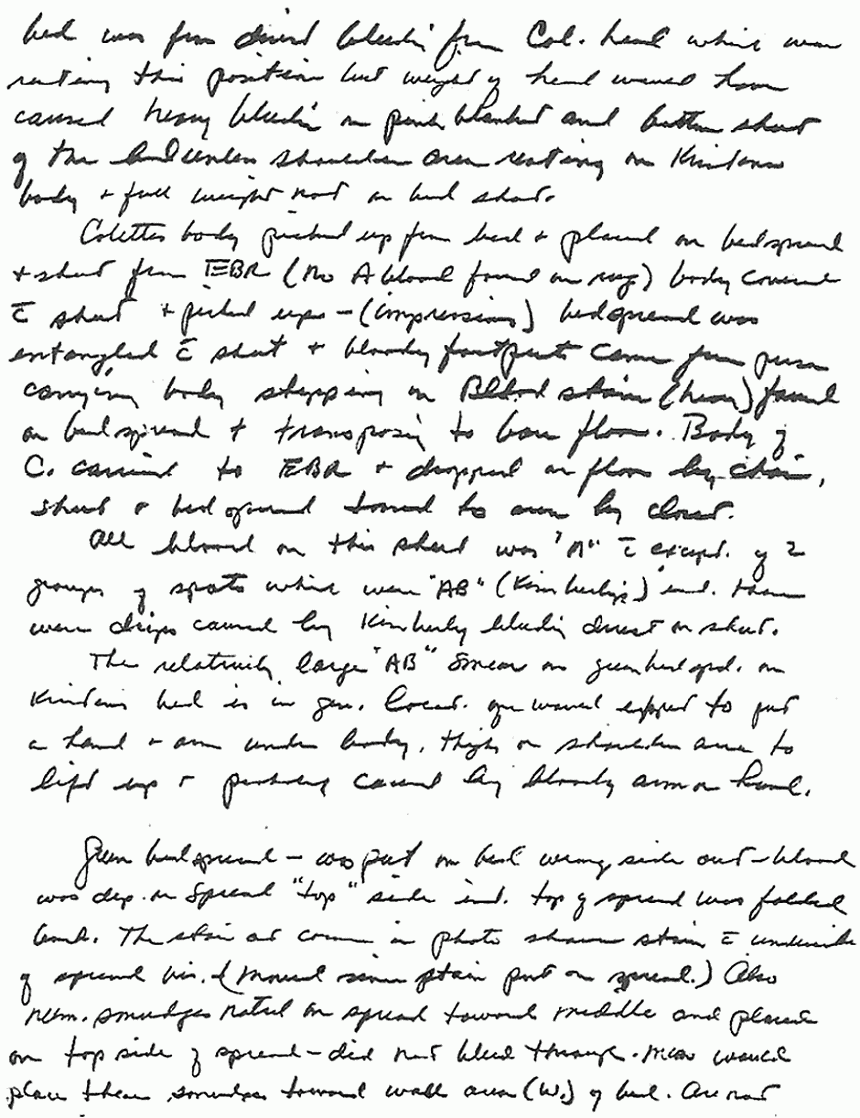 bed was from direct bleeding from Col. head which was
resting this position but weight of head would have
caused heavy bleeding on pink blanket and bottom sheet
of the bed unless shoulder area resting on Kristens
body + full weight not on bed sheet.
Colettes body picked up from bed + placed on bedspread
+ sheet from EBR (No A blood found on rug) body covered
c̄ sheet + picked up - (impressions) bedspread was
entangled c̄ sheet + bloody footprints came from person
carrying body stepping on Blood stain (heavy) found
on bedspread + transposing to bare floor. Body of
C. carried to EBR + dropped on floor by chair,
sheet & bedspread tossed to area by closet.
All blood on this sheet was "A" c̄ except. of 2
groups of spots which were "AB" (Kimberly's) ind. these
were drips caused by Kimberly bleeding direct on sheet.
The relatively large "AB" smear on green bedspd. on
Kristens bed is in gen. locat. one would expect to put
a hand + arm under body, thigh or shoulder area to
lift up & probably caused by bloody arm or hand.
Green bedspread - was put on bed wrong side out - blood
was dep. on spread "top" side ind. top of spread was folded
back. The stain at corner in photo shows stain c̄ underside
of spread vis. (Moved since stain put on spread.) Also
num. smudges noted on spread toward middle and placed
on top side of spread - did not bleed through. Mean would
place these smudges toward wall area (W.) of bed. Are not